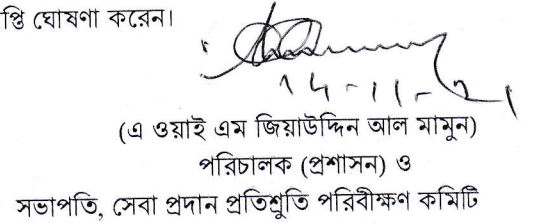 প্তি ঘোষণা করেন।
(এ ওয়াই এম জিয়াউদ্দিন আল মামুন)
পরিচালক (প্রশাসন) ও
সভাপতি, সেবা প্রদান প্রতিশ্রুতি পরিবীক্ষণ কমিটি